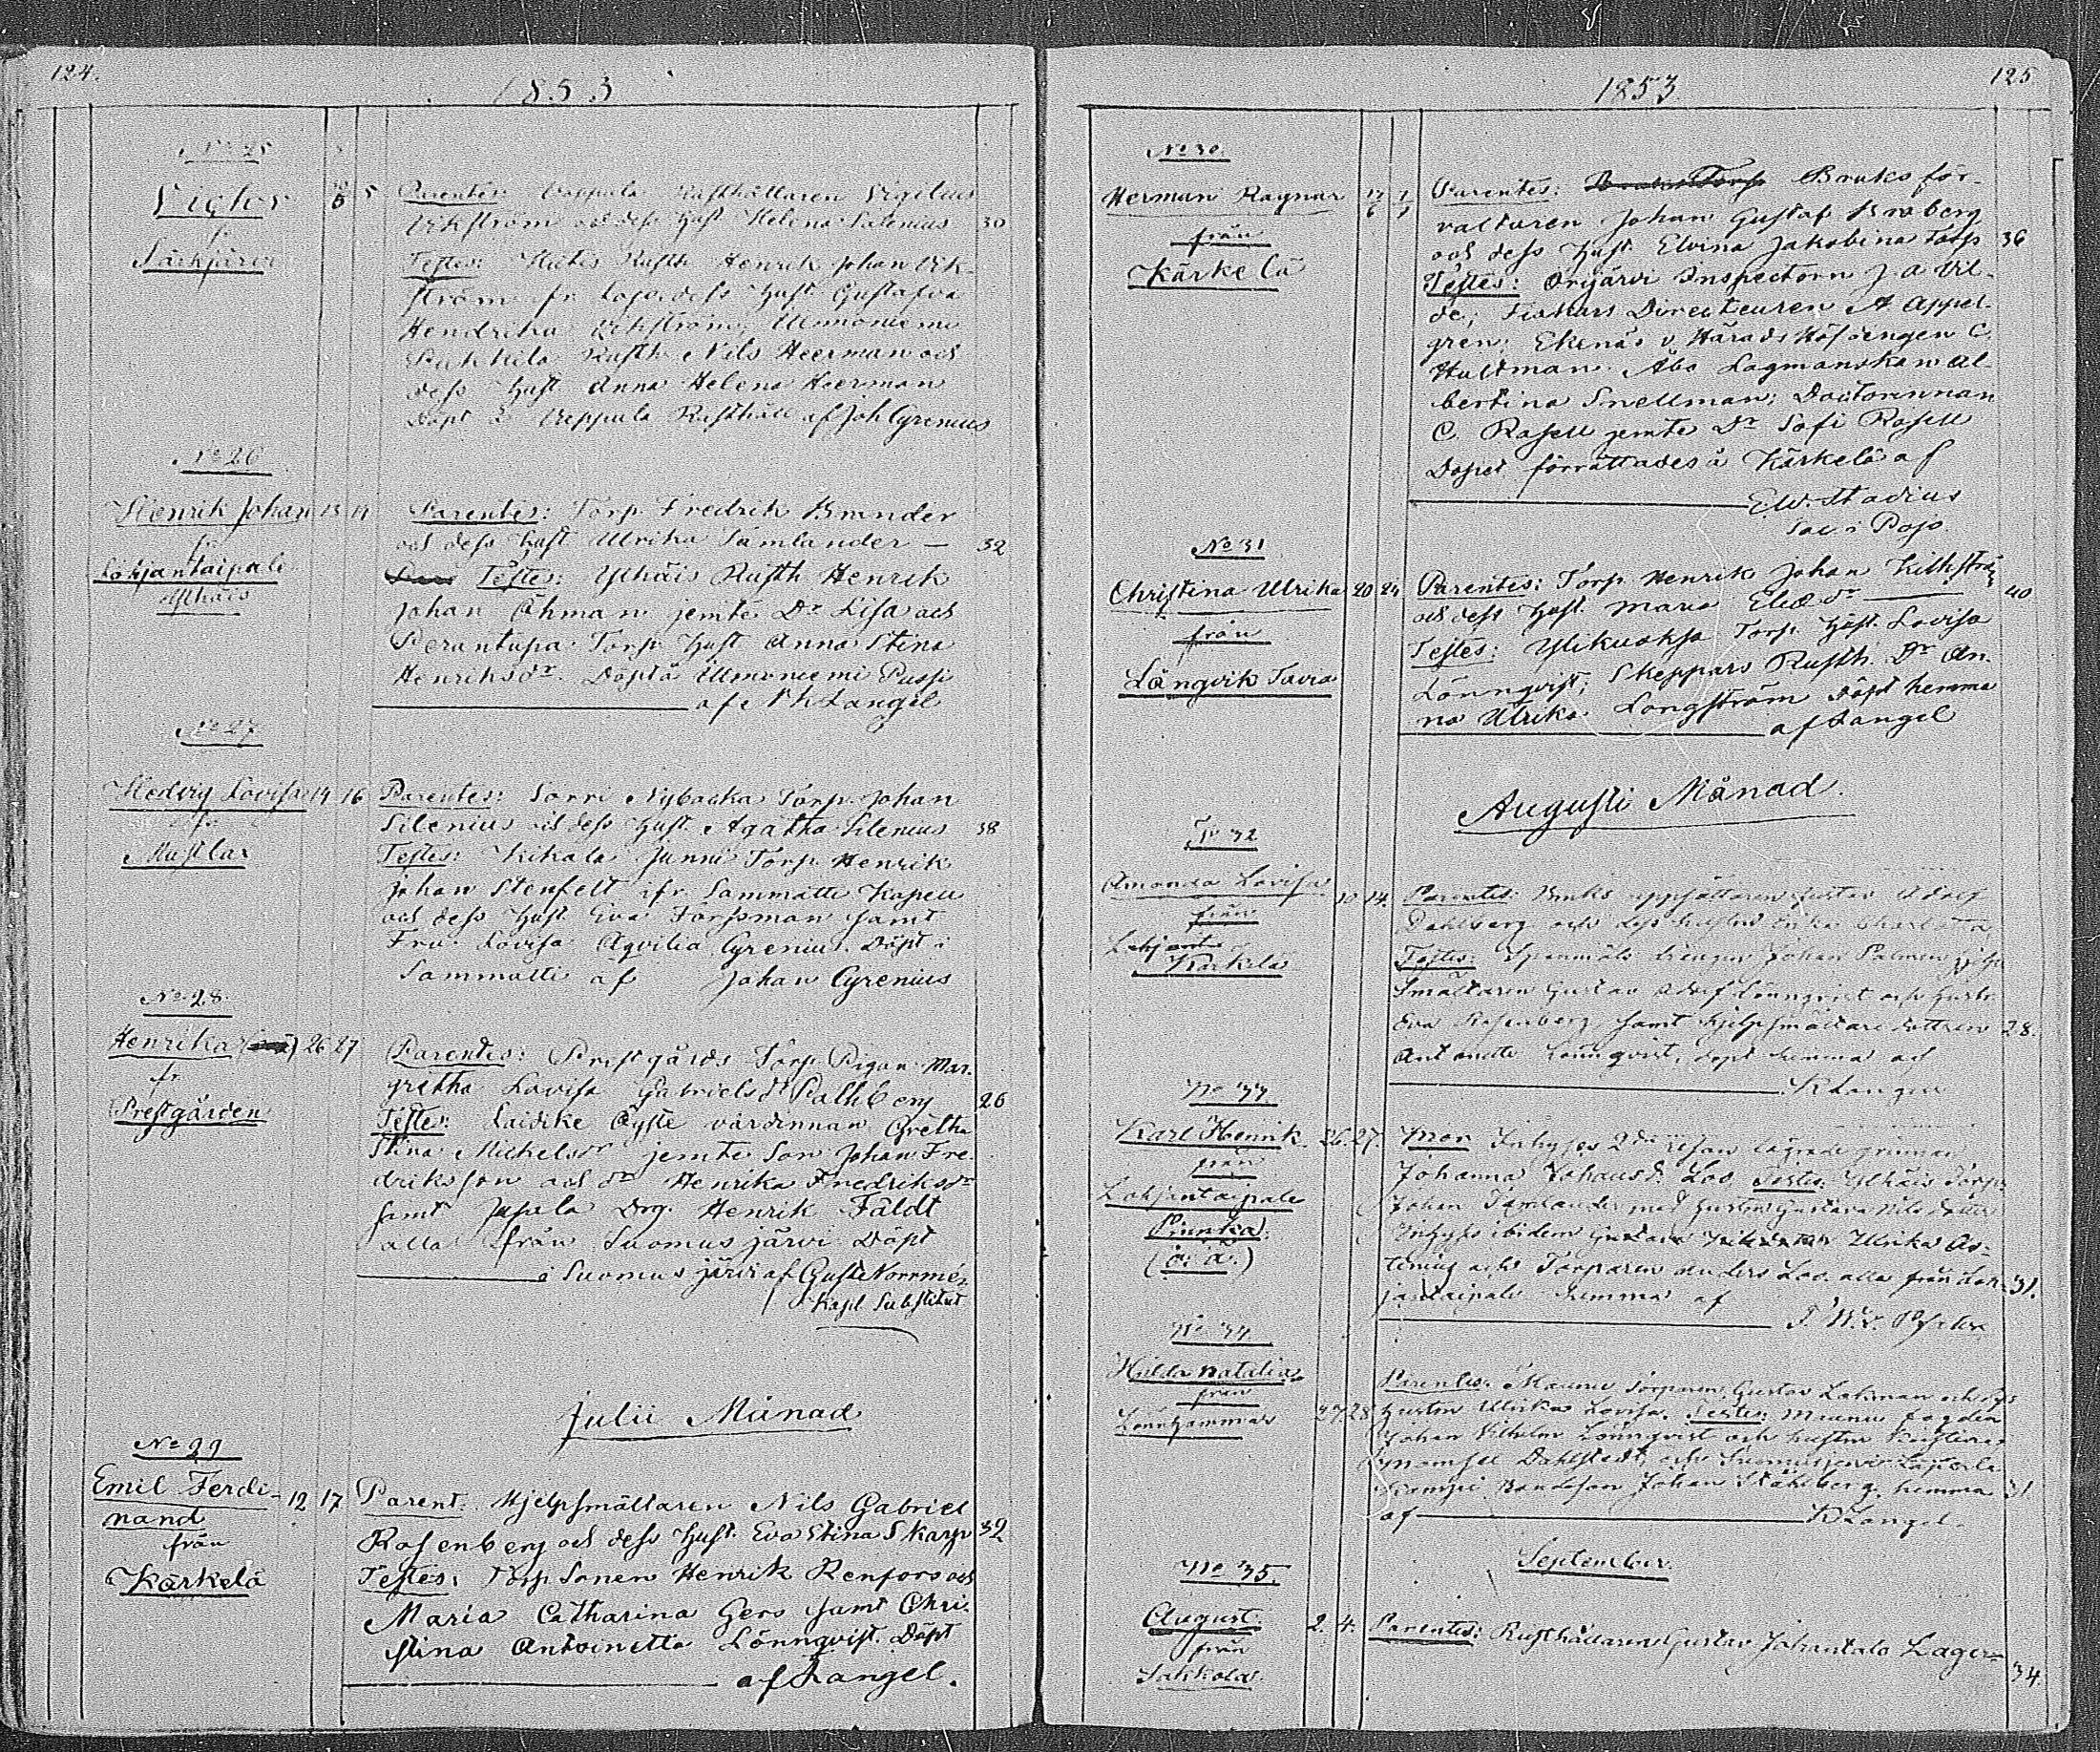 124.
1853
No 25
Victor
fr
Särkjärvi
30/5 5
Parentes: Rusthållaren Vigelius
Ekström och dess Hust Helena Silenius 30
Testes: Rusth Henrik Johan Ek-
ström fr Lojo dess Hust Gustafva
Hendrika Ekström; Ummoniemi
Pukkila Rusth Nils Heerman och
dess Hust Anna Helena Heerman
Döpt å Rusthåll af Joh Cyrenius
No 26
Henrik Johan 13 14
fr
Lohjantaipale
Ylhäis
Parentes: Torp. Fredrik Brunder
och dess Hust Ulrika Tamlander — 32
Testes: Ylhäis Rusth Henrik
Johan Öhman jemte Dr Lisa och
Perantupa Torp. Hust Anna Stina
Henriksdr. Döpt å Ummoniemi Pussi
af Langel
No 27
Hedvig Lovisa 14 16
fr
Mustlax
Parentes: Sorri Nybacka Torp. Johan
Silenius och dess Hust. Agatha Silenius 38
Testes: Kikala Junni Torp. Henrik
Johan Stenfelt ifr. Sammatti Kapell
och dess Hust Eva Forssman samt
Fru Lovisa Aqvilia Cyrenius. Döpt i
Sammatti af Johan Cyrenius
No 28.
Henrika 26 27
fr.
Prestgården
Parentes: Prestgårds Torp. Pigan Mar-
gretha Lovisa Gabrielsdr Palhberg 26
Testes: Laidike Öyste värdinnan Gretha
Stina Michelsdr jemte Son Johan Fre-
driksson och dr Henrika Fredriksdr
samt Jupala Drg. Henrik Fäldt
alla från Suomusjärvi Döpt
i Suomusjärvi af Gust Norrmén
Kapl Substitut
Julii Månad
No 29
Emil Ferdi- 12 17
nand
från
Kärkelä
Parent: Hjelpsmältaren Nils Gabriel
Rosenberg och dess Hust. Eva Stina Skarp 32
Testes: Torp Sonen Henrik Renfors och
Maria Catharina Gers samt Chri-
stina Antoinetta Lönnqvist. Döpt
af Langel.
1853
125
No 30.
Herman Ragnar 17/6 1/7
från
Kärkelä
Parentes: Bruks för-
valtaren Johan Gustaf Broberg
och dess Hust. Elvina Jakobina Torp 36
Testes: Orijärvi Inspectorn J A Vil-
de; Fiskars Directeuren A Appel-
gren; Ekenäs v. Härads Höfdingen C.
Hultman. Åbo Lagmanskan Al-
bertina Snellman; Doctorinnan
C. Rosell jemte Dr Sofi Rosell
Dopet förrättades å Kärkelä af
E.W. Stadius
Sac. i Pojo
No 31
Christina Ulrika 20 24
från
Långvik Tavia
Parentes: Torp. Henrik Johan Lilhström
och dess Hust. Maria Elisdr 40
Testes: Ylikuoksa Torp. Hust. Lovisa
Lönnqvist; Skeppars Rusth. Dr An-
na Ulrika Longström döpt hemma
af Langel
Augusti Månad.
No 32
Amanda Lovisa 10 14.
från
Kärkelä
Parentes: Bruks uppsättaren Gustav Adolf
Dahlberg och dess hustru Erika Charlotta
Testes: Johan Palmen
Smältaren Gustav Adolf Lönnqvist och Hustr.
Eva Rosenberg samt hjelpsmältare dottren 28.
Antonette Lönnqvist, döpt hemma af
Langel
No 33.
Karl Henrik. 26. 27.
från
Lohjantaipale
Piuntia
(o. ä.)
Mor Inhyses 2dra resan lägrade qvinnan
Johanna Johansdr Loo. Testes: Ylhäis Torp.
Johan Tamlander med hustrun Gustava Nilsdotter
Inhyses ibidem Ulrika As-
tenius och Torparen Anders Loo. alla från Loh- 31.
jantaipale hemma af
No 34
Hilda Natalia 27 28
från
Lönnhammar
Parentes. Torparen Gustav Lahman och dess
hustru Ulrika Lovisa. Testes: fogden
Johan Vilhelm Lönnqvist och hustru
mamsell Dahlstedt, och
Kamppi Bondeson Johan Ståhlberg. hemma 31
af Langel.
September.
No 35.
August. 2. 4.
från
Sakkola.
Parentes: Rusthållaren Gustav Johantalo Lager-
34.